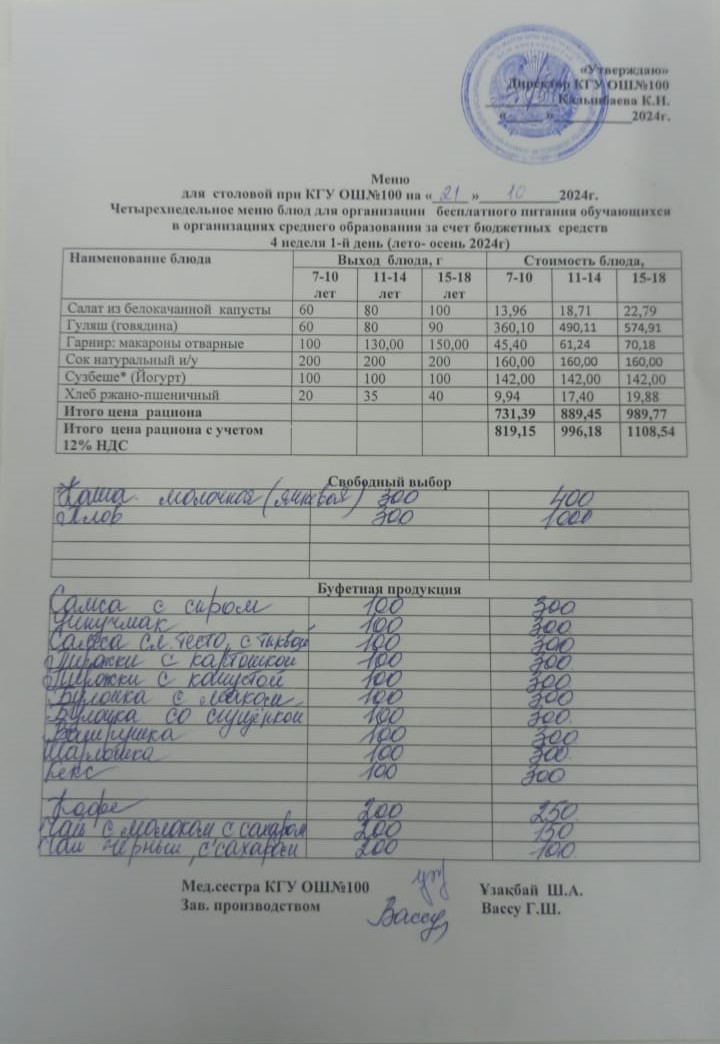 «Утверждаю»
Директор КГУ ОШ№100
__________Калыбаева К.Н.
«_____»___________2024г.
Меню
для столовой при КГУ ОШ№100 на «21» 10 2024г.
Четырехнедельное меню блюд для организации бесплатного питания обучающихся
в организациях среднего образования за счет бюджетных средств
4 неделя 1-й день (лето- осень 2024г)
Наименование блюда Выход блюда, г Стоимость блюда,
7-10 лет 11-14 лет 15-18 лет 7-10 11-14 15-18
Салат из белокачанной капусты 60 80 100 13,96 18,71 22,79
Гуляш (говядина) 60 80 90 360,10 490,11 574,91
Гарнир: макароны отварные 100 130,00 150,00 45,40 61,24 70,18
Сок натуральный и/у 200 200 200 160,00 160,00 160,00
Сузбеше* (Йогурт) 100 100 100 142,00 142,00 142,00
Хлеб ржано-пшеничный 20 35 40 9,94 17,40 19,88
Итого цена рациона 731,39 889,45 989,77
Итого цена рациона с учетом 819,15 996,18 1108,54
12% НДС
Свободный выбор
Каша молочная (ячневая) 300 400
Плов 300 1000
Буфетная продукция
Самса с сыром 100 300
Учпучмак 100 300
Самса сл. тесто, с тыквой 100 300
Пирожки с картошкой 100 300
Пирожки с капустой 100 300
Булочка с маком 100 300
Булочка со сгущёнкой 100 300
Ватрушка 100 300
100 300
Кекс 100 300
Кофе 200 250
Чай с молоком с сахаром 200 150
Чай черный, с сахаром 200 100
Мед.сестра КГУ ОШ№100 Ұзақбай Ш.А.
Зав. производством Вассу Вассу Г.Ш.